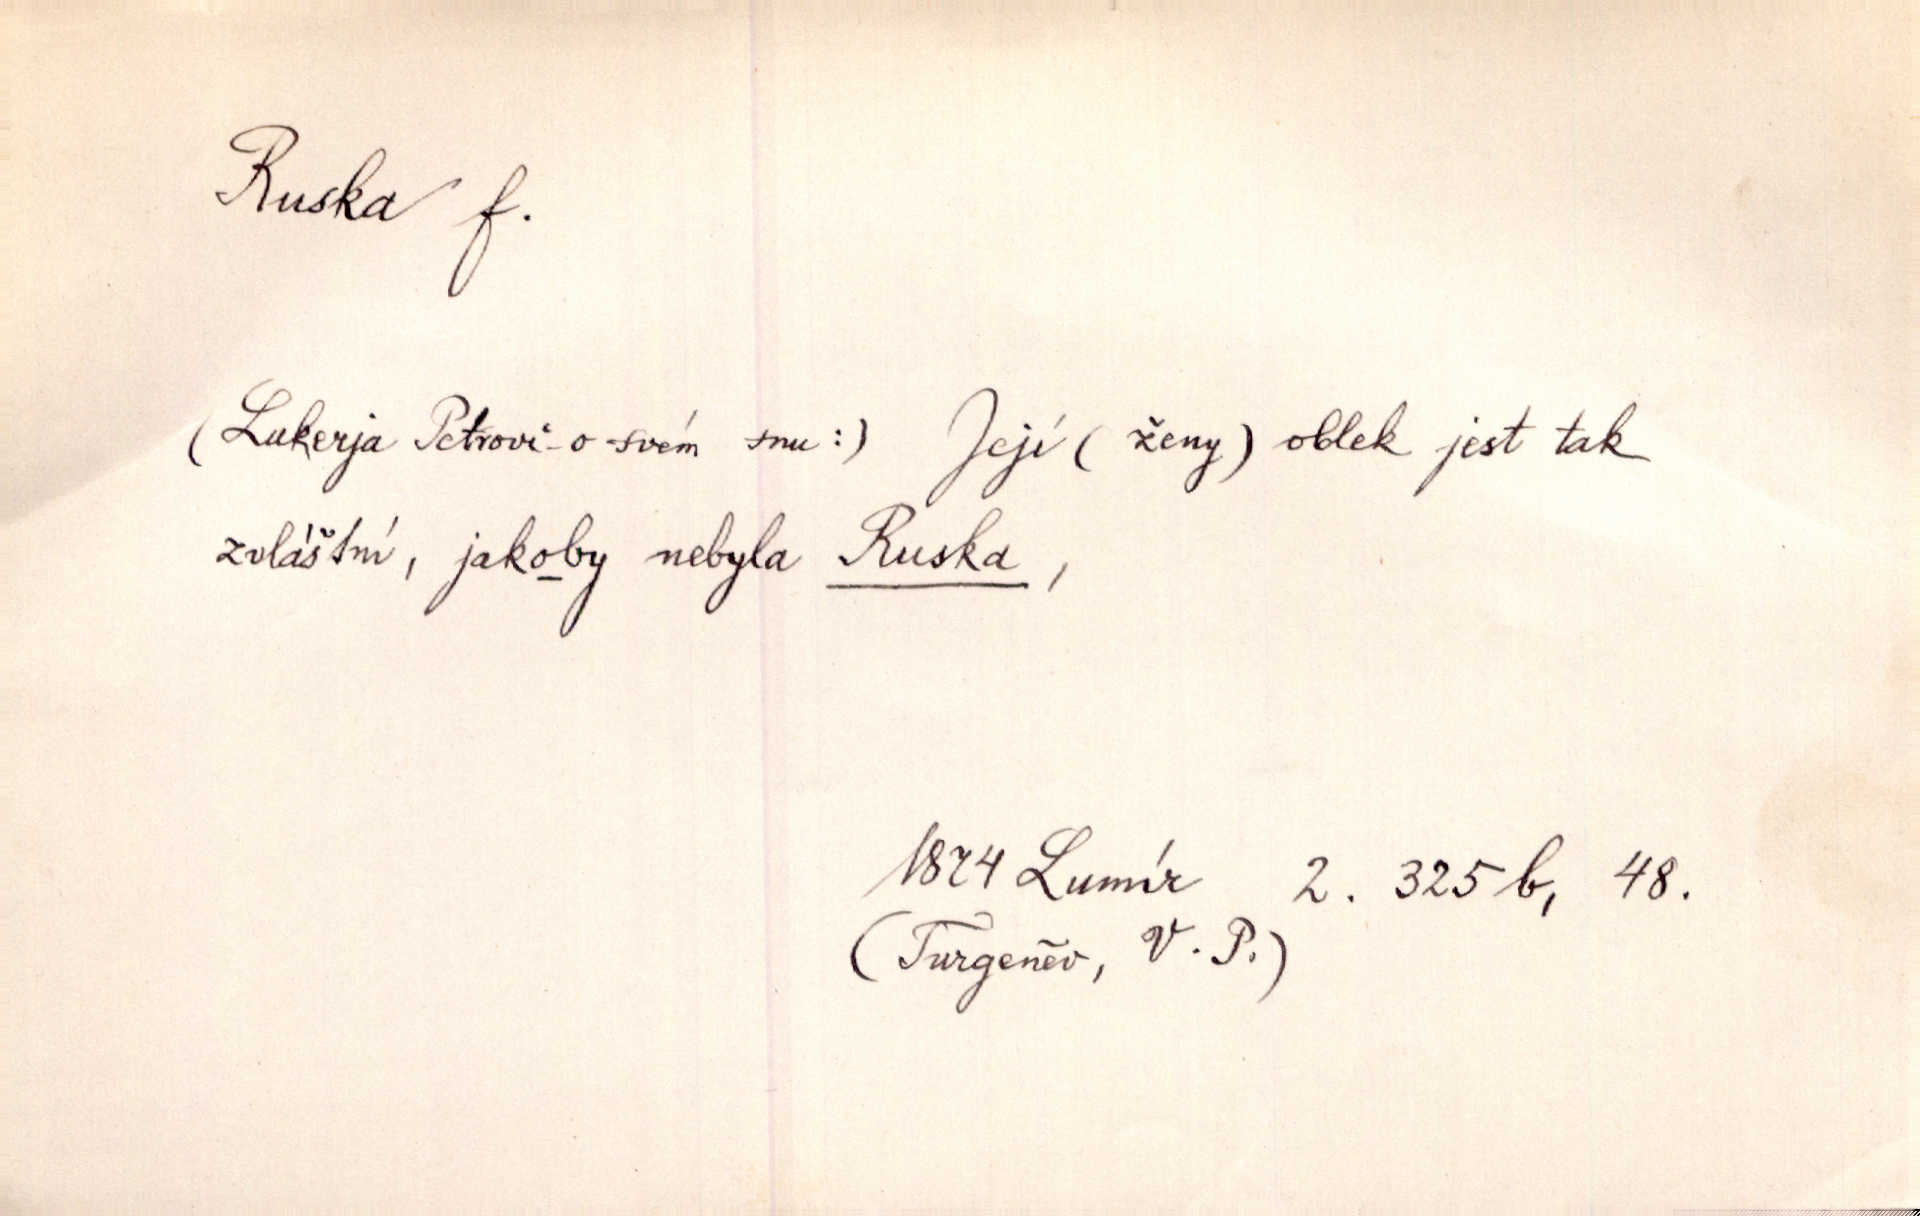 Ruska f.
(Lukerja Petrovi o svém snu:) Její (ženy) oblek jest tak
zvláštní, jakoby nebyla Ruska,
1874 Lumír 2. 325 b, 48.
(Turgeněv, V. P.)